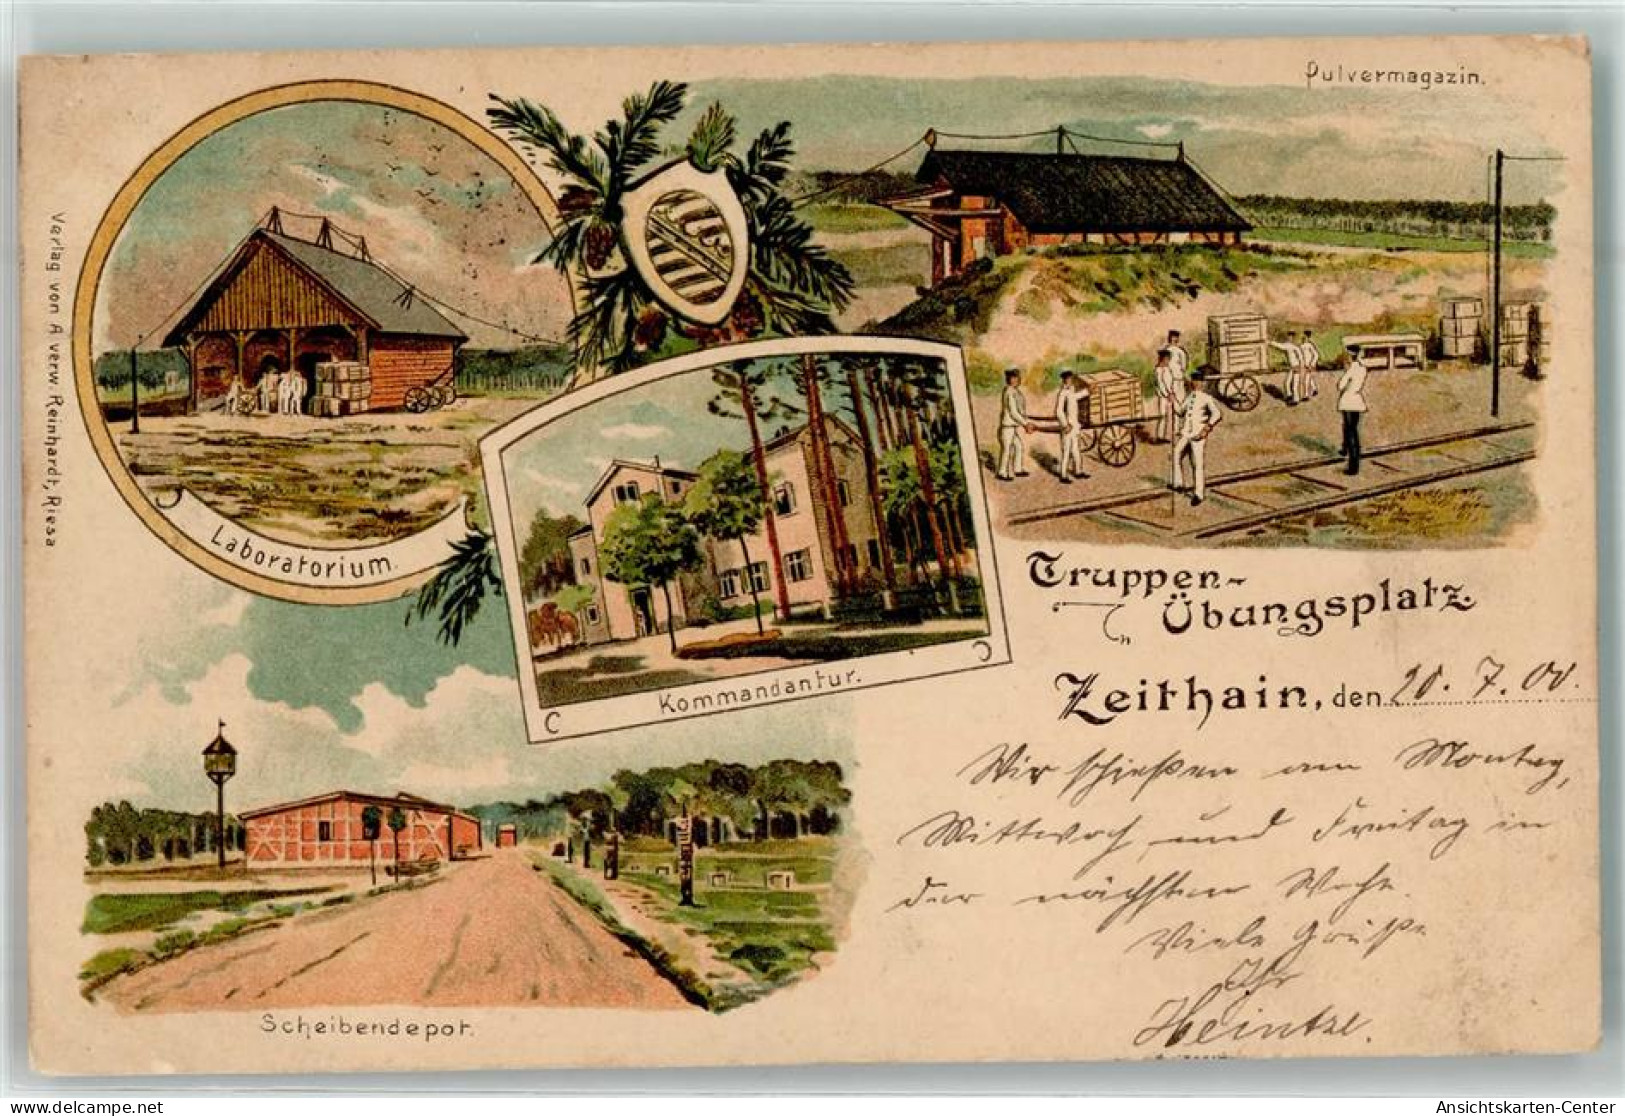 Pulvermagazin.
Verlag von A verw. Reinhardt, Riesa
Laboratorium.
Kommandantur.
Truppen-
Übungsplatz
Zeithain, den 20. 7. 00.
Wir schießen am Montag,
Mittwoch und Freitag in
der nächsten Woche.
Viele Grüße
Ihr
Heintze.
Scheibendepot.
Ansichtskarten-Center